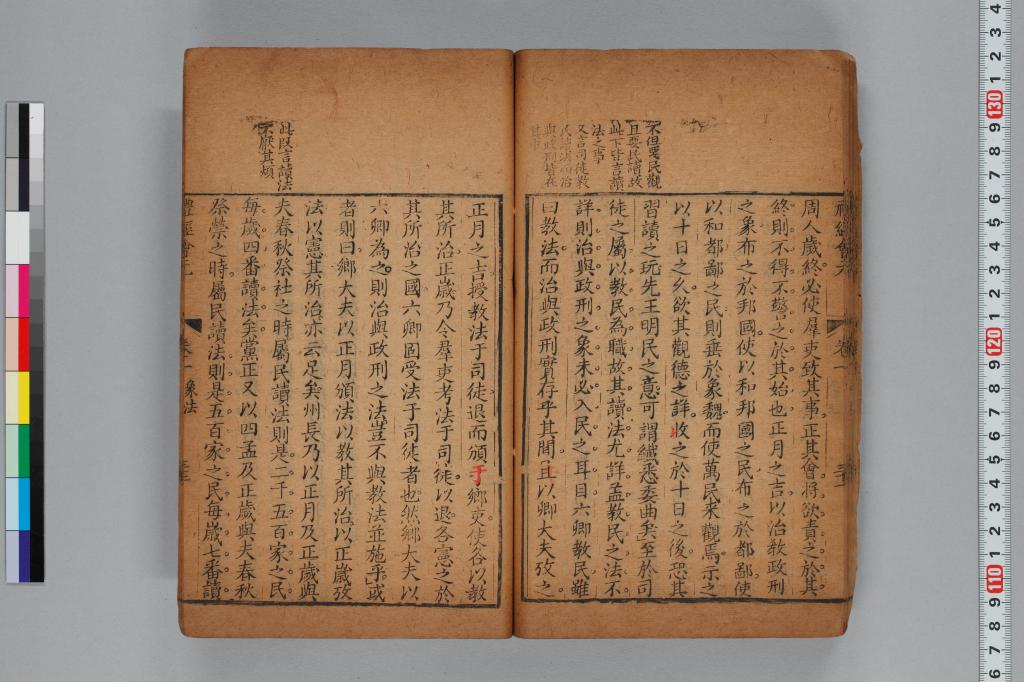 禮經會元
卷一
周人歲終必使羣吏致其事正其會將欲責之於其
終則不得不警之於其始也正月之吉以治教政刑
之象布之於邦國使以和邦國之民布之於都鄙使
以和都鄙之民則垂於象魏而使萬民來觀焉示之
以十日之久欲其觀德之詳收之於十日之後恐其
習讀之玩先王明民之意可謂纖悉委曲矣至於司
徒之屬以教民為職故其讀法尤詳盖教民之法不
詳則治與政刑之象未必入民之耳目六卿教民雖
曰教法而治與政刑實存乎其間且以卿大夫攷之
不但要民觀
且要民讀故
此下皆言讀
法之事
又言司徒教
民讀法而治
與政刑皆在
其中
正月之吉授教法于司徒退而頒于鄉吏使各以教
其所治正歲乃令羣吏考法于司徒以退各憲之於
其所治之國六卿固受法于司徒者也然鄉大夫以
六卿為之則治與政刑之法豈不與教法並施乎或
者則曰鄉大夫以正月頒法以教其所治以正歲攷
法以憲其所治亦云足矣州長乃以正月及正歲與
夫春秋祭社之時屬民讀法則是二千五百家之民
每歲四番讀法矣黨正又以四孟及正歲與夫春秋
祭禜之時屬民讀法則是五百家之民每歲七番讀
此既言讀法
不厭其煩
禮經會元
卷一
象法